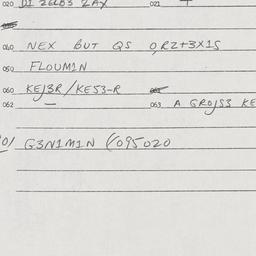 020 DI 26LD3 ZAX 021
040 NEX BUT QS O,RZ+3X1S
050 FLOUM1N
060 KEJ3R/KE53-R
062 — 063 A GROJS3 KE
G3N1M1N (095020